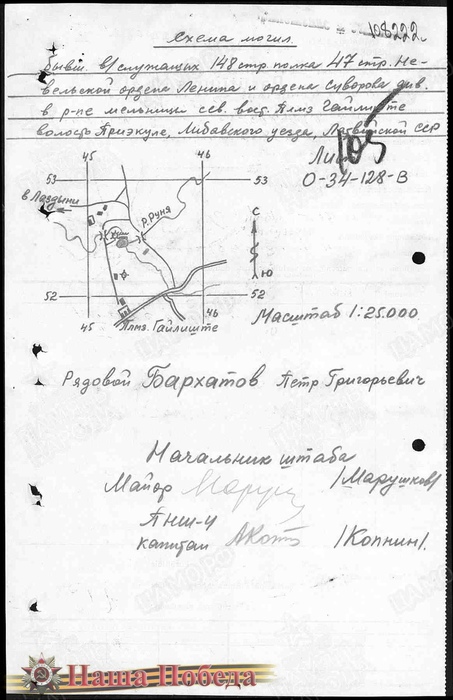 108222.
Схема могил
бывш. в/служащих 148 стр. полка 47 стр. Не-
вельской ордена Ленина и ордена Суворова див.
в р-не мельницы сев. вост. Плмз Гайлиште
волость Приэкуле, Либавского уезда, Латвийской ССР
105
Лист
О-34-128-В
45 46
53 53
в Лаздыни
р. Руня
С
Ю
52 52
45 46
Плмз. Гайлиште
Масштаб 1:25.000
Рядовой Бархатов Петр Григорьевич
Начальник штаба
Майор /Марушков/
ПНШ-4
капитан /Копнин/.
Наша Победа